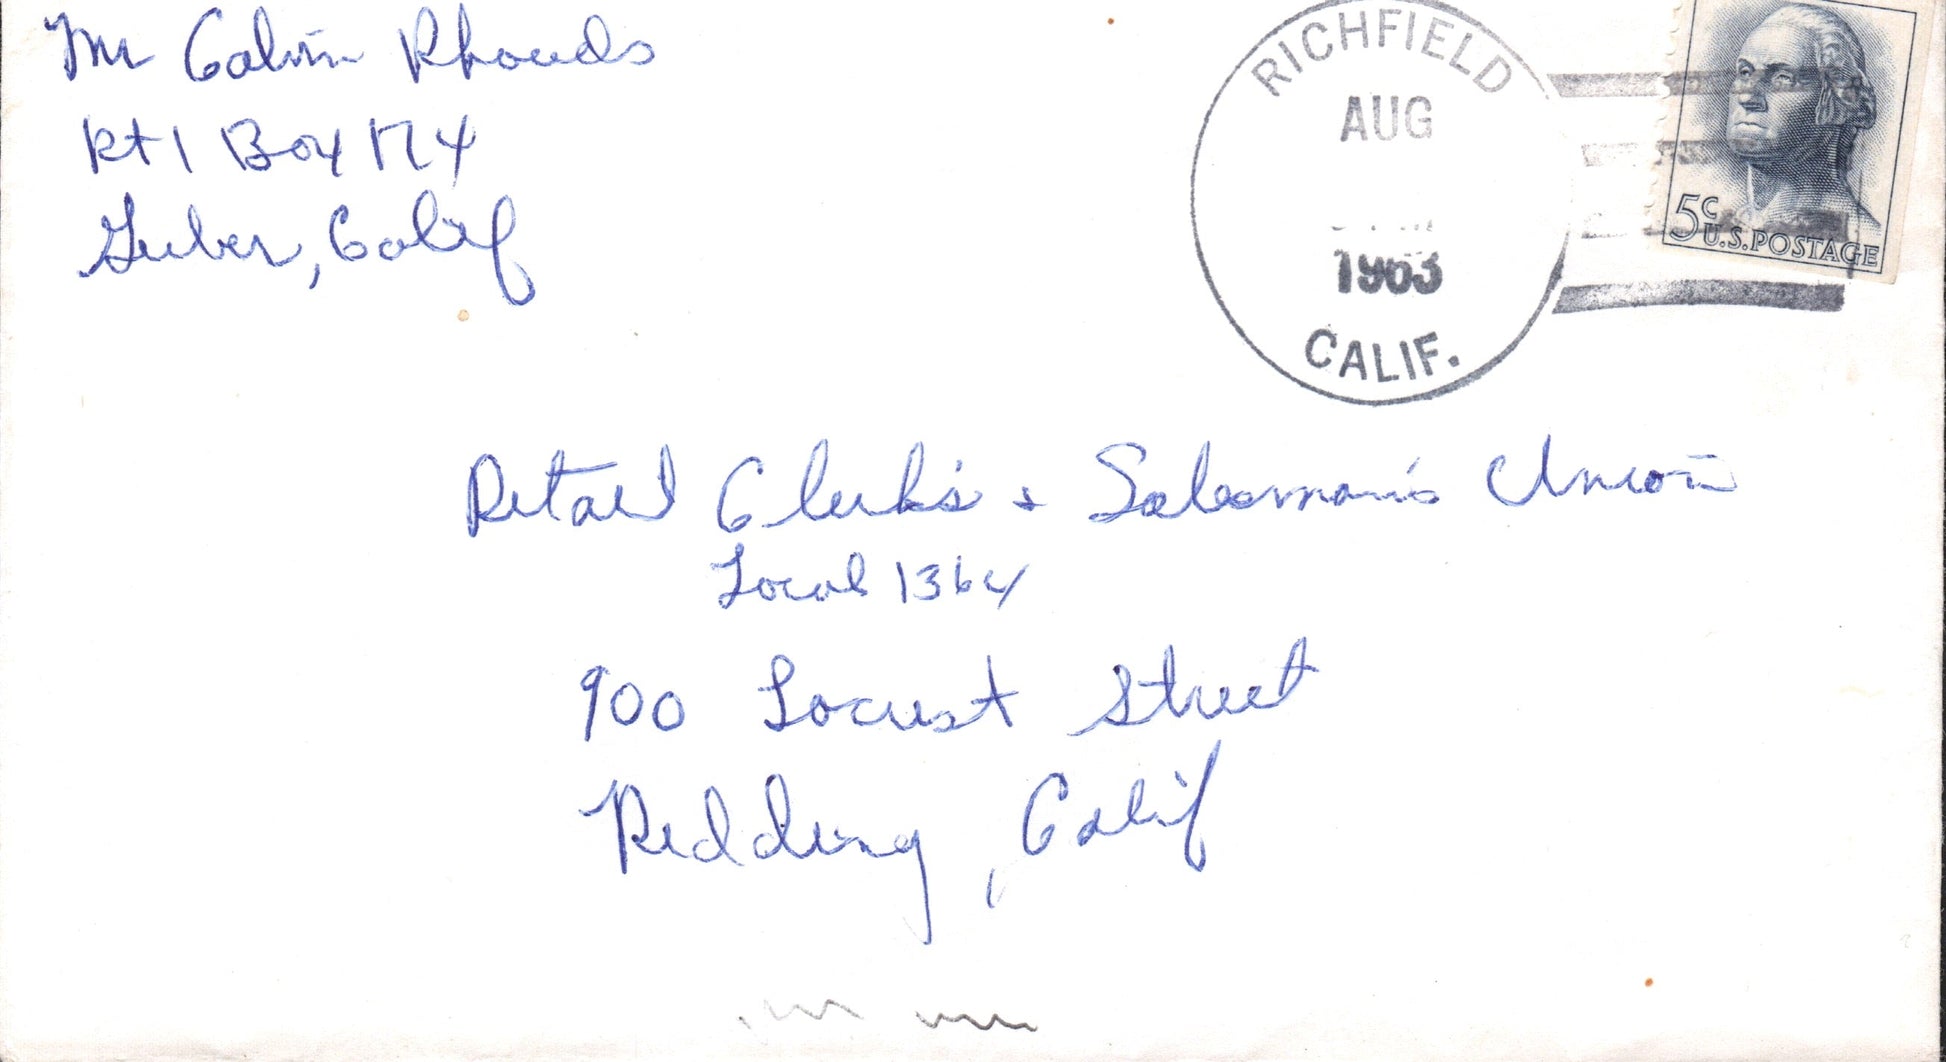 Mr Calvin Rhoads
Rt 1 Box 174
Gerber, Calif
RICHFIELD
AUG
1963
CALIF.
5c
U.S. POSTAGE
Retail Clerk's + Salesman's Union
Local 1364
900 Locust Street
Redding, Calif